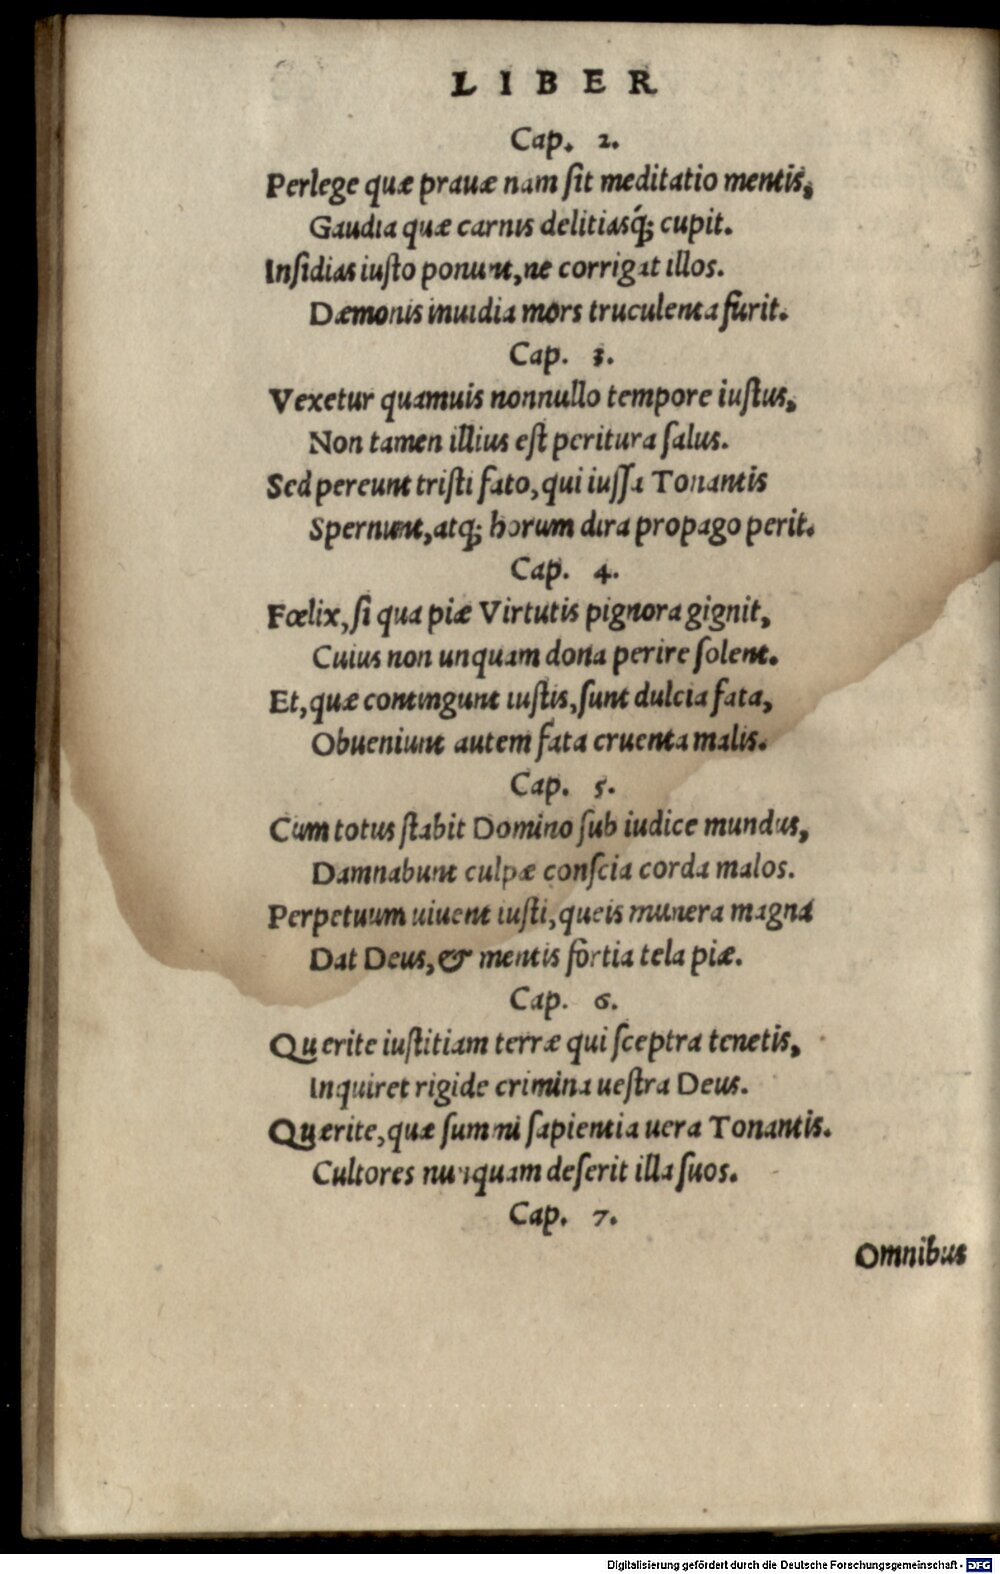 LIBER
Cap. 2.
Perlege quæ prauæ nam ſit meditatio mentis,
Gaudia quæ carnis delitiasq́; cupit.
Inſidias iuſto ponunt, ne corrigat illos.
Dæmonis inuidia mors truculenta furit.
Cap. 3.
Vexetur quamuis nonnullo tempore iuſtus,
Non tamen illius eſt peritura ſalus.
Sed pereunt triſti fato, qui iuſſa Tonantis
Spernunt, atq; horum dira propago perit.
Cap. 4.
Fœlix, ſi qua piæ Virtutis pignora gignit,
Cuius non unquam dona perire ſolent.
Et, quæ contingunt iuſtis, ſunt dulcia fata,
Obueniunt autem fata cruenta malis.
Cap. 5.
Cum totus ſtabit Domino ſub iudice mundus,
Damnabunt culpæ conſcia corda malos.
Perpetuum uiuent iuſti, queis munera magna
Dat Deus, & mentis fortia tela piæ.
Cap. 6.
Querite iuſtitiam terræ qui ſceptra tenetis,
Inquiret rigide crimina ueſtra Deus.
Quærite, quæ ſummi ſapientia uera Tonantis.
Cultores nunquam deſerit illa ſuos.
Cap. 7.
Omnibus
Digitalisierung gefördert durch die Deutsche Forschungsgemeinschaft - DFG